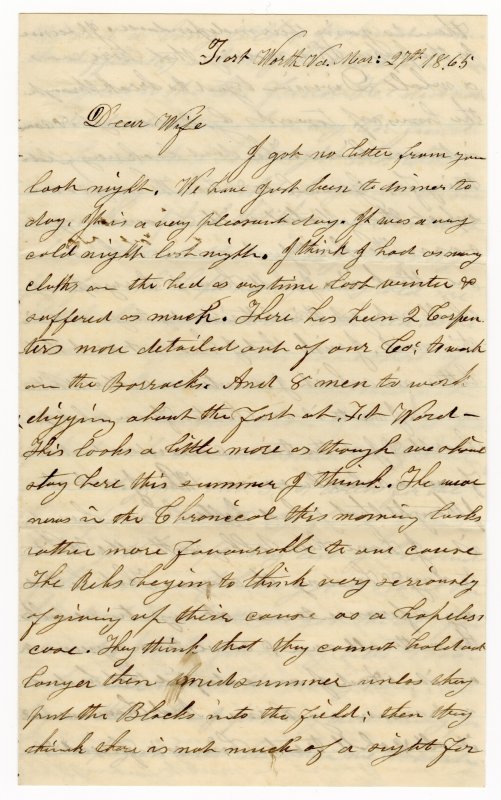 Fort Worth Va. Mar: 27th 1865
Dear Wife
I got no letter from you
last night. We have just been to dinner to
day. This is a very pleasant day. It was a very
cold night last night. I think I had as many
cloths on the bed as anytime last winter &
suffered as much. There has been 2 Carpen
ters more detailed out of our Co: to work
on the Barracks. And 8 men to work
digging about the fort at Ft Ward -
This looks a little more as though we should
stay here this summer I think. The war
news in the Chronical this morning looks
rather more favourable to our cause
The Rebs begin to think very seriously
of giving up their cause as a hopeless
case. They think that they cannot hold out
longer then midsummer unless they
put the Blacks into the field; then they
think there is not much of a sight for